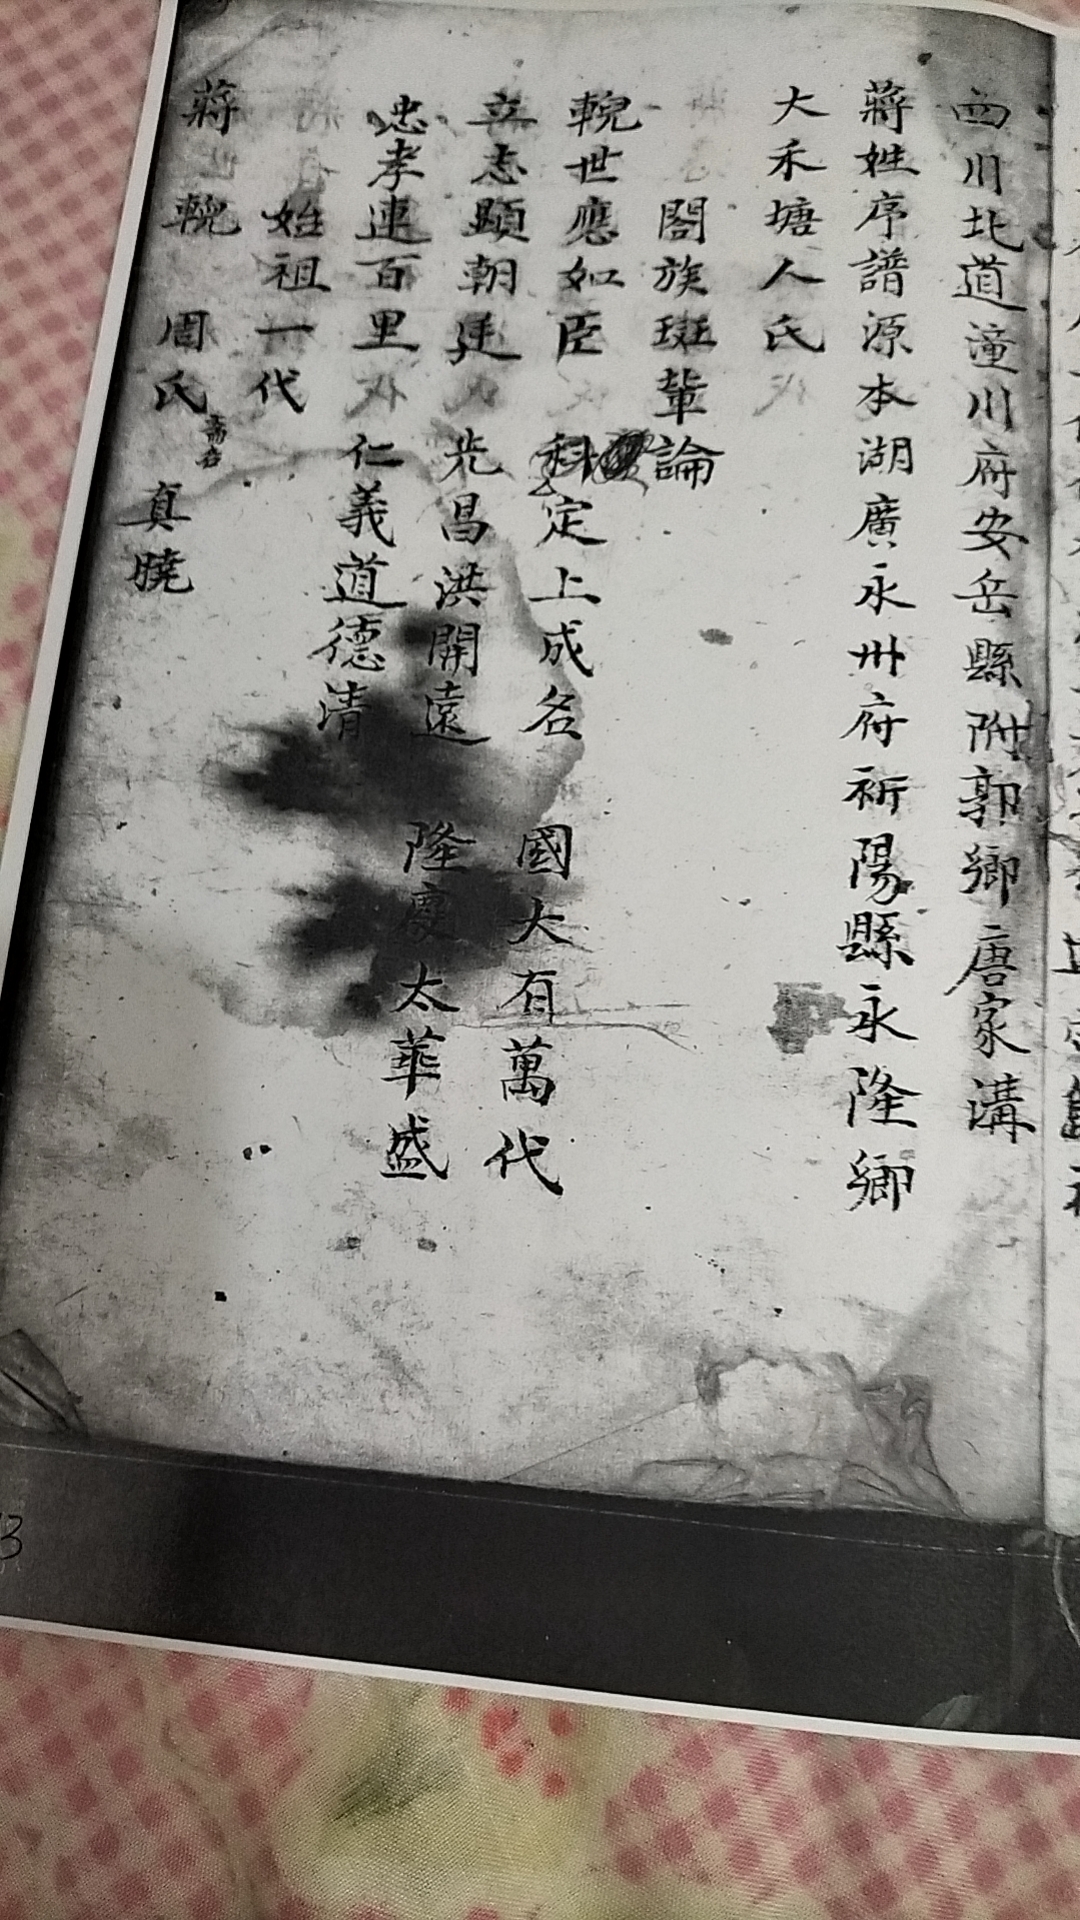 西川北道潼川府安岳縣附郭鄉唐家溝
蔣姓序譜源本湖廣永州府祈陽縣永隆鄉
大禾塘人氏
閤族斑輩論
輗世應如臣 科定上成名 國大有萬代
立志顯朝廷 光昌洪開遠 隆慶太華盛
忠孝連百里 仁義道德清
始祖一代
蔣輗 周氏 真曉
3